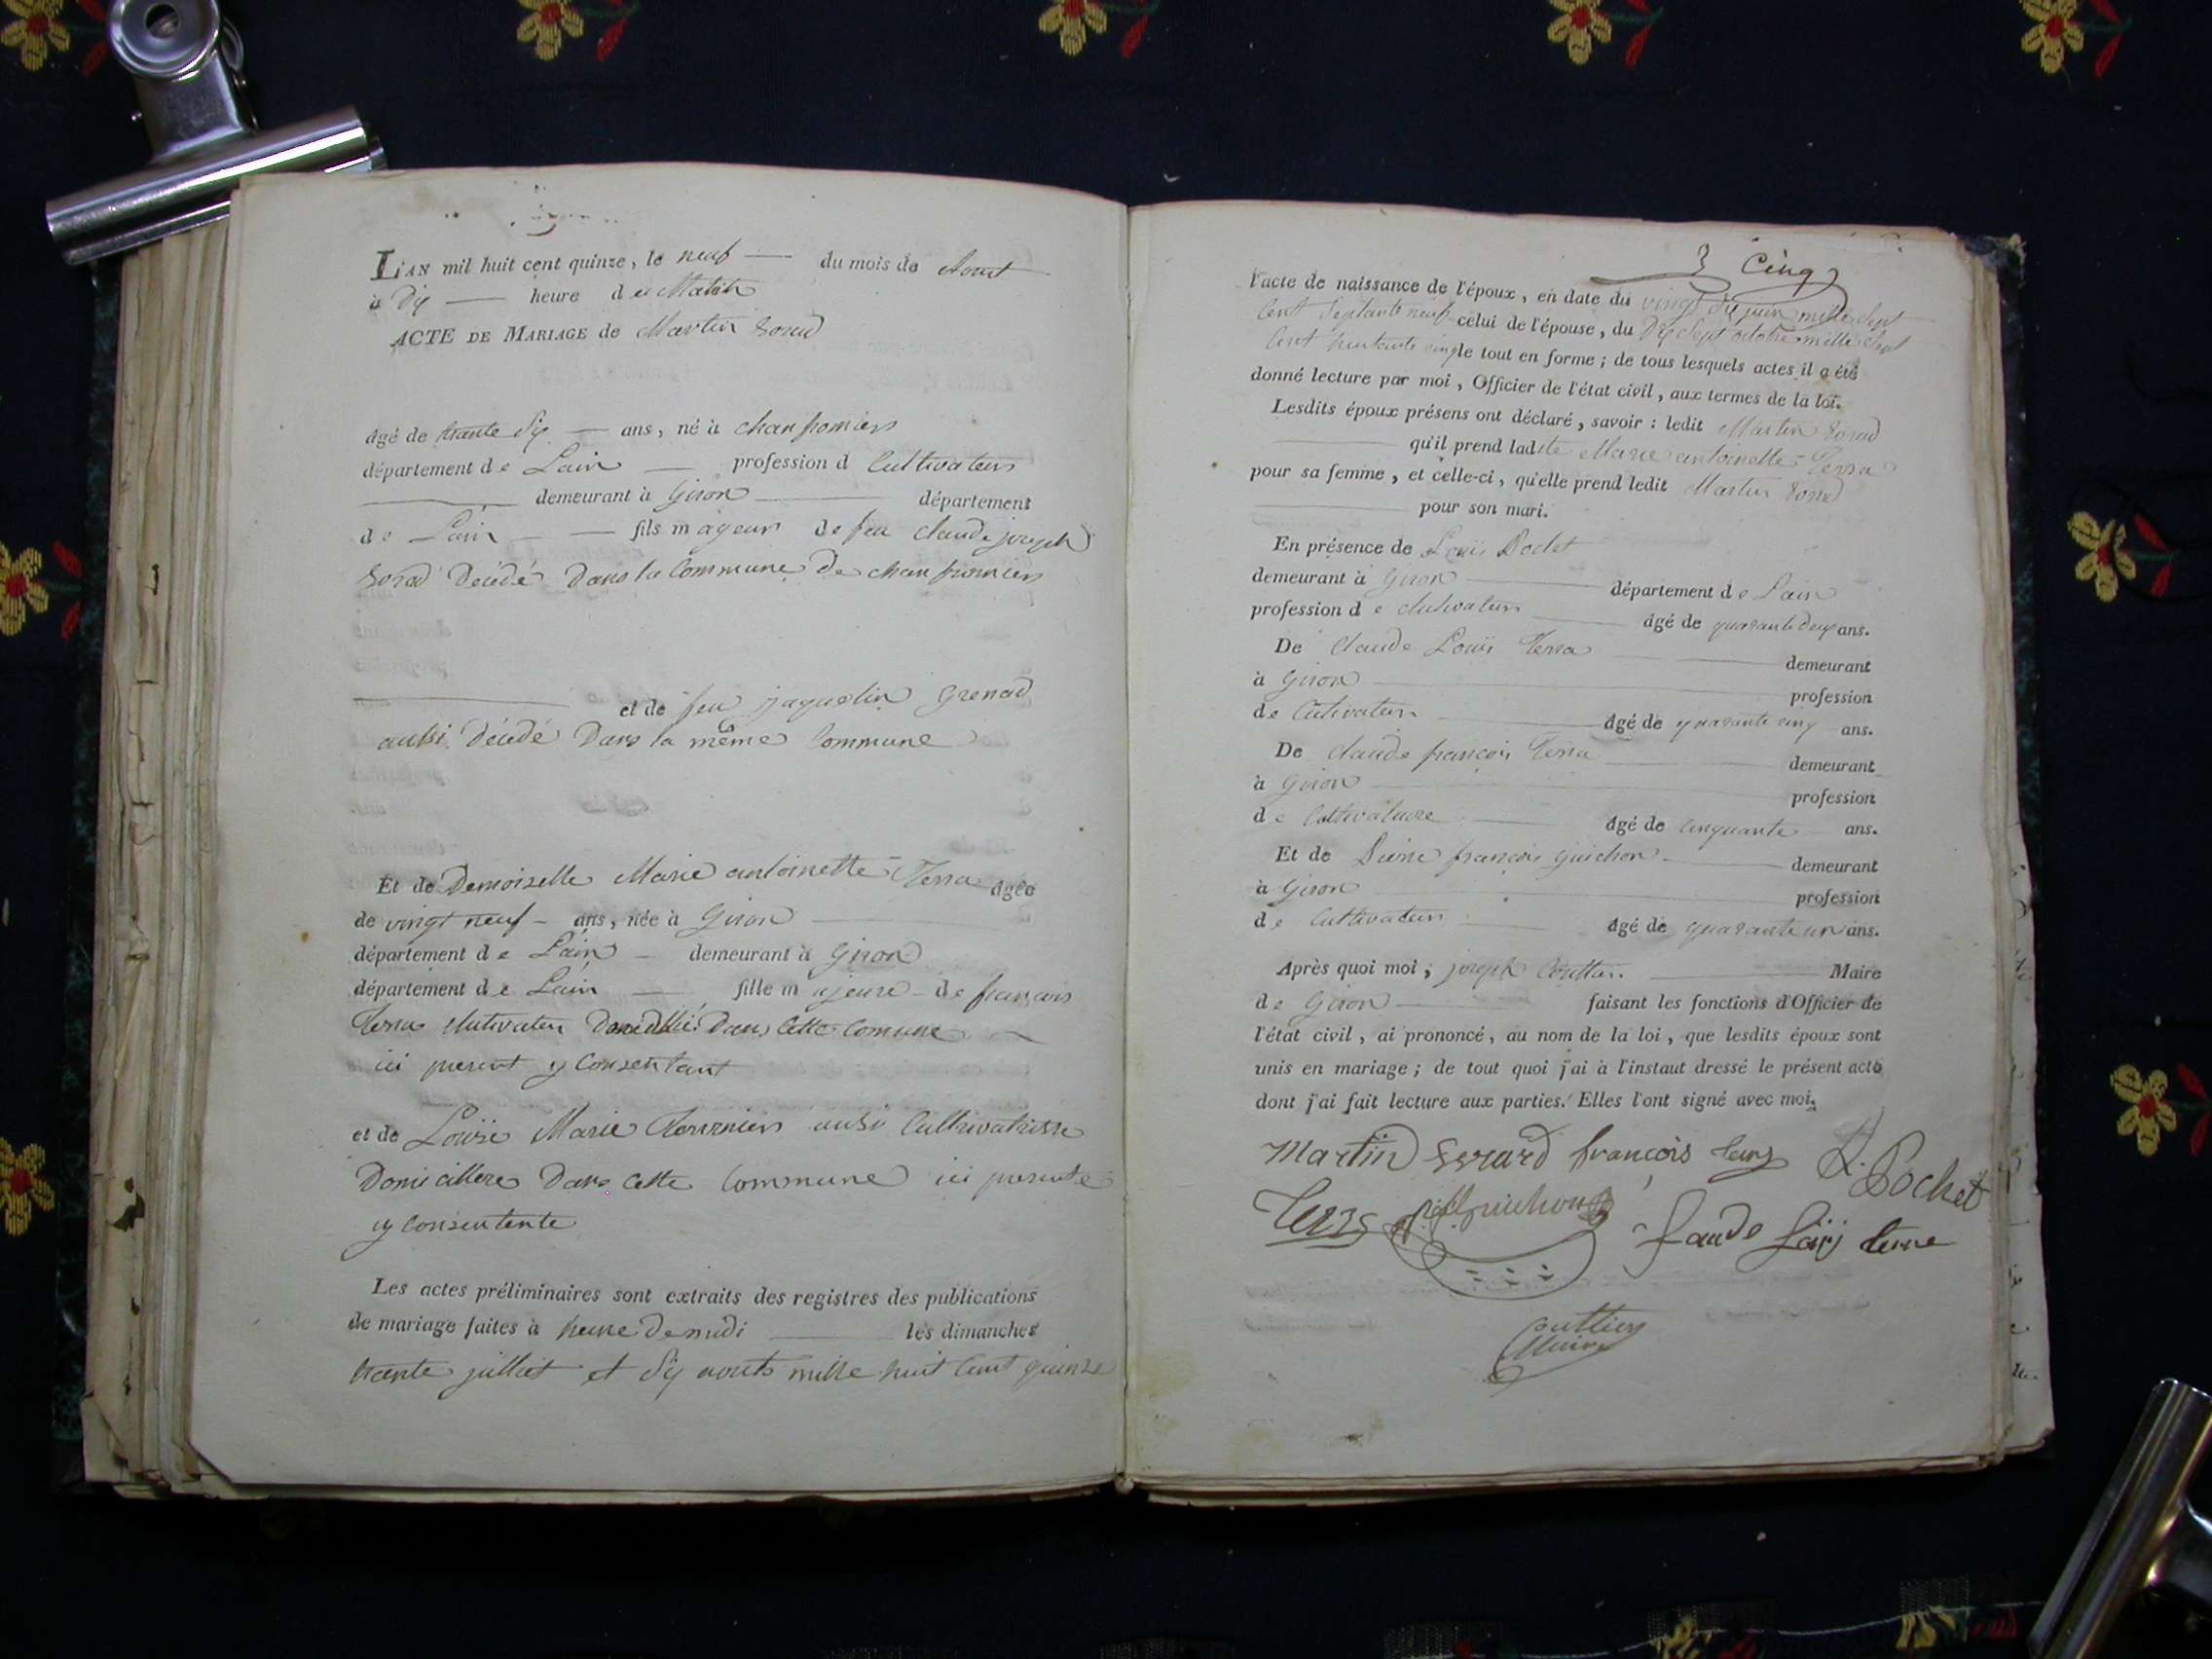 L'AN mil huit cent quinze, le neuf du mois de Aout
à dix heure du Matin
ACTE DE MARIAGE de Martin
âgé de trante six ans, né à chanfromiers
département de Lain profession d Cultivateur
demeurant à Giron département
de Lain fils mageur de feu claude joseph
décédé Dans la Commune de chanfromiers
et de feu jaqueline Grenad
aussi décédé Dans la même Commune
Et de Demoiselle Marie antoinette Terra âgée
de vingt neuf ans, née à Giron
département de Lain demeurant à Giron
département de Lain fille majeure de francois
Terra Dans Cette Comune
ici present y Consentant
et de Louise Marie ausi Cultivatrisse
Dans Cette Commune ici presente
y Consentente
Les actes préliminaires sont extraits des registres des publications
de mariage faites à heure de midi les dimanches
trante julliet et six aouts mille huit Cent quinze
3 Cinq
l'acte de naissance de l'époux, en date du vingt six juin mille Sept
Cent Septante neuf celui de l'épouse, du Dix Sept octobre mille Sept
Cent huitante cinq le tout en forme ; de tous lesquels actes il a été
donné lecture par moi, Officier de l'état civil, aux termes de la loi.
Lesdits époux présens ont déclaré, savoir : ledit Martin
qu'il prend ladite Marie antoinette Terra
pour sa femme, et celle-ci, qu'elle prend ledit Martin
pour son mari.
En présence de Louis Pochet
demeurant à Giron département de Lain
profession de âgé de quarante deux ans.
De Claude Louis Terra demeurant
à Giron profession
de Cultivateur âgé de quarante cinq ans.
De claude françois Terra demeurant
à Giron profession
de âgé de Cinquante ans.
Et de Pierre françois Guichon demeurant
à Giron profession
de Cultivateur âgé de quarante un ans.
Après quoi moi, joseph Maire
de Giron faisant les fonctions d'Officier de
l'état civil, ai prononcé, au nom de la loi, que lesdits époux sont
unis en mariage ; de tout quoi j'ai à l'instaut dressé le présent acte
dont j'ai fait lecture aux parties. Elles l'ont signé avec moi.
Martin françois L. Pochet
Guichon